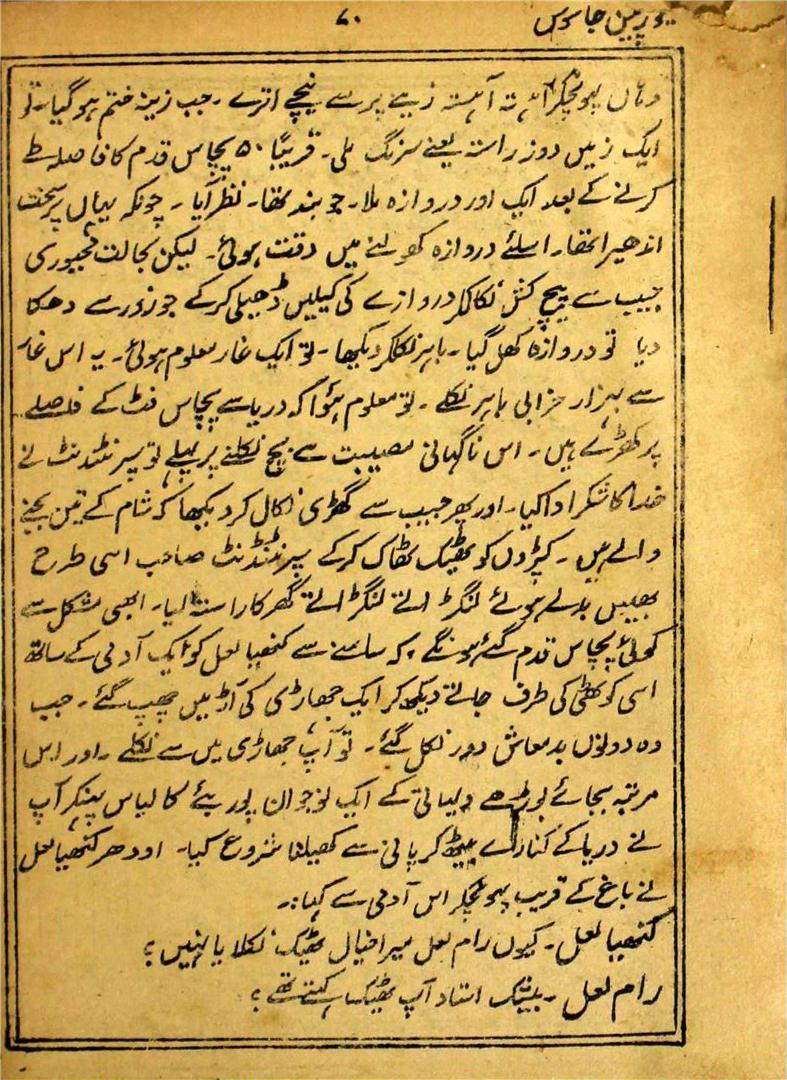 یورپین جاسوس
۷۰
وہاں پہونچکر آہستہ آہستہ زینے پر سے نیچے اترے۔ جب زینہ ختم ہوگیا۔ تو
ایک زمیں دوز راستہ یعنے سرنگ ملی۔ قریباً ۵۰ پچاس قدم کا فاصلہ طے
کرنے کے بعد ایک اور دروازہ ملا۔ جو بند تھا۔ نظر آیا۔ چونکہ یہاں پر سخت
اندھیرا تھا۔ اسلئے دروازہ کھولنے میں دقت ہوئی۔ لیکن بحالت مجبوری
جیب سے پیچ کش نکالکر دروازے کی کیلیں ڈھیلی کرکے جو زور سے دھکا
دیا تو دروازہ کھل گیا۔ باہر نکلکر دیکھا۔ تو ایک غار معلوم ہوئی۔ یہ اس غار
سے ہزار خرابی باہر نکلے۔ تو معلوم ہؤا کہ دریا سے پچاس فٹ کے فاصلے
پر کھڑے ہیں۔ اس ناگہانی مصیبت سے بچ نکلنے پر پہلے تو سپرنٹنڈنٹ نے
خدا کا شکر ادا کیا۔ اور پھر جیب سے گھڑی نکال کر دیکھا کہ شام کے تین بجنے
والے ہیں۔ کپڑوں کو ٹھیک ٹھاک کرکے سپرنٹنڈنٹ صاحب اسی طرح
بھیس بدلے ہوئے لنگڑاتے لنگڑاتے گھر کا راستہ لیا۔ ابھی مشکل سے
کوئی پچاس قدم گئے ہونگے کہ سامنے سے کنھیا لعل کو ایک آدمی کے ساتھ
اسی کوٹھی کی طرف جاتے دیکھ کر ایک جھاڑی کی آڑ میں چھپ گئے۔ جب
وہ دونوں بدمعاش دور نکل گئے۔ تو آپ جھاڑی میں سے نکلے۔ اور اس
مرتبہ بجائے بوڑھے دیہاتی کے ایک نوجوان پوربئے کا لباس پہنکر آپ
نے دریا کے کنارے بیٹھ کر پانی سے کھیلنا شروع کیا۔ اودھر کنھیا لعل
نے باغ کے قریب پہونچکر اس آدمی سے کہا:۔
کنھیا لعل۔ کیوں رام لعل میرا خیال ٹھیک نکلا یا نہیں؟
رام لعل۔ بیشک استاد آپ ٹھیک کہتے تھے؟